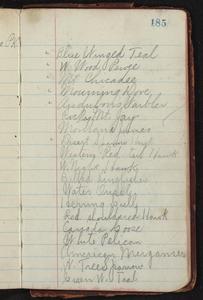 185
Blue Winged Teal
W. Wood Pewee
Mt. Chicadee
Mourning Dove
Audubons Warbler
Rocky Mt. Jay
Montana Junco
Desert Sparrow
Western Red Tail Hawk
W. Night Hawk
Belted Kingfisher
Water Ouzel
Herring Gull
Red Shouldered Hawk
Canada Goose
White Pelican
American Merganser
W. Tree Sparrow
Green W. Teal